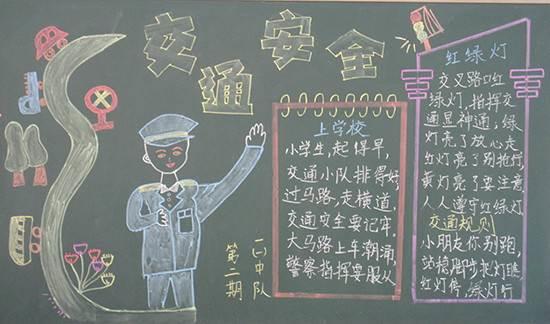 交通安全
上学校
小学生,起得早,
交通小队排得好,
过马路,走横道,
交通安全要记牢,
大马路上车潮涌,
警察指挥要服从
一(1)中队
第二期
红绿灯
交叉路口红
绿灯,指挥交
通显神通;绿
灯亮了放心走
红灯亮了别抢行,
黄灯亮了要注意
人人遵守红绿灯
交通规则
小朋友你别跑,
站稳脚步把灯瞧
红灯停,绿灯行